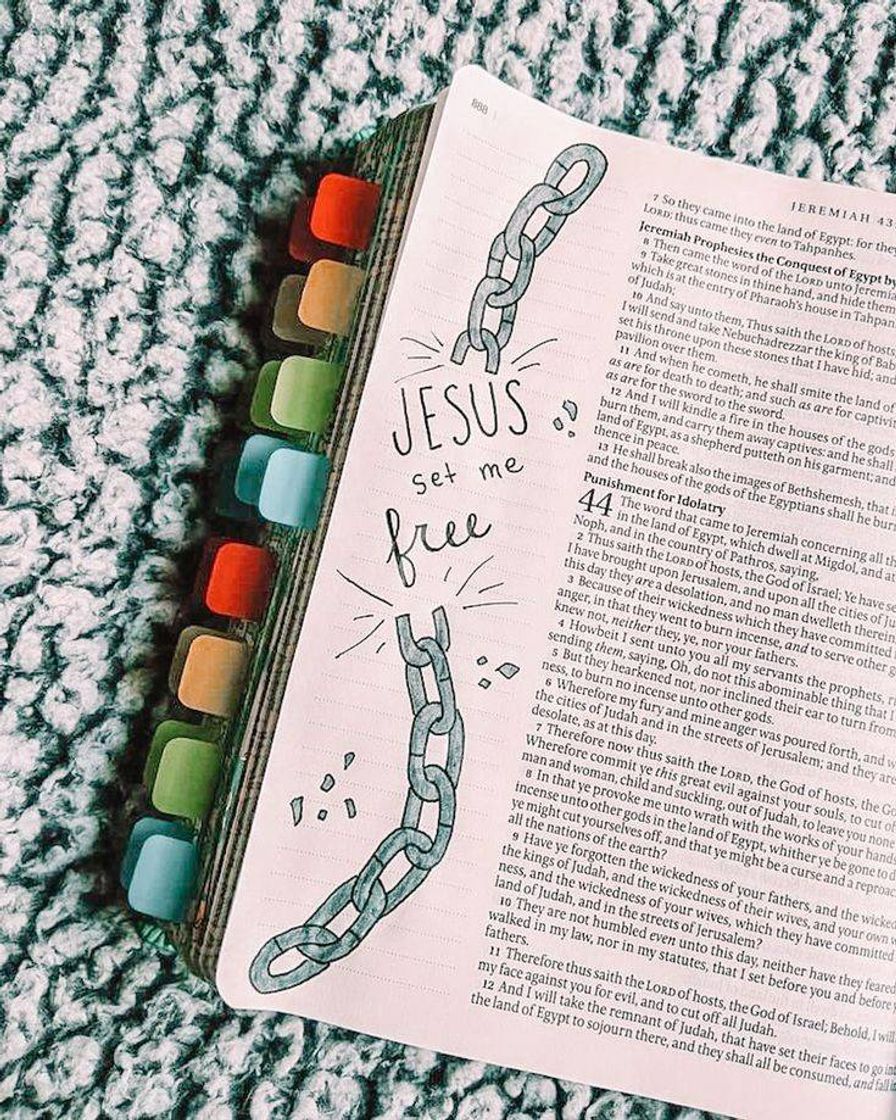 888
JESUS
set me
free
JEREMIAH 43
7 So they came into the land of Egypt: for they
LORD: thus came they even to Tahpanhes.
Jeremiah Prophesies the Conquest of Egypt by
8 Then came the word of the LORD unto Jeremi
9 Take great stones in thine hand, and hide them
which is at the entry of Pharaoh's house in Tahpan
of Judah;
10 And say unto them, Thus saith the LORD of hosts
I will send and take Nebuchadrezzar the king of Bab
set his throne upon these stones that I have hid; and
pavilion over them.
11 And when he cometh, he shall smite the land of
as are for death to death; and such as are for captivi
as are for the sword to the sword.
12 And I will kindle a fire in the houses of the gods
burn them, and carry them away captives: and he shall
land of Egypt, as a shepherd putteth on his garment; and
thence in peace.
13 He shall break also the images of Bethshemesh, that i
and the houses of the gods of the Egyptians shall he bur
Punishment for Idolatry
44 The word that came to Jeremiah concerning all th
in the land of Egypt, which dwell at Migdol, and a
Noph, and in the country of Pathros, saying,
2 Thus saith the LORD of hosts, the God of Israel; Ye have
I have brought upon Jerusalem, and upon all the cities of J
this day they are a desolation, and no man dwelleth therei
3 Because of their wickedness which they have committed
anger, in that they went to burn incense, and to serve other
knew not, neither they, ye, nor your fathers.
4 Howbeit I sent unto you all my servants the prophets,
sending them, saying, Oh, do not this abominable thing that
5 But they hearkened not, nor inclined their ear to turn from
ness, to burn no incense unto other gods.
6 Wherefore my fury and mine anger was poured forth, and w
the cities of Judah and in the streets of Jerusalem; and they a
desolate, as at this day.
7 Therefore now thus saith the LORD, the God of hosts, the G
Wherefore commit ye this great evil against your souls, to cut o
man and woman, child and suckling, out of Judah, to leave you none
8 In that ye provoke me unto wrath with the works of your hand
incense unto other gods in the land of Egypt, whither ye be gone to d
ye might cut yourselves off, and that ye might be a curse and a reproac
all the nations of the earth?
9 Have ye forgotten the wickedness of your fathers, and the wicke
the kings of Judah, and the wickedness of their wives, and your own
ness, and the wickedness of your wives, which they have committed
land of Judah, and in the streets of Jerusalem?
10 They are not humbled even unto this day, neither have they feared
walked in my law, nor in my statutes, that I set before you and before
fathers.
11 Therefore thus saith the LORD of hosts, the God of Israel; Behold, I will
my face against you for evil, and to cut off all Judah.
12 And I will take the remnant of Judah, that have set their faces to go int
the land of Egypt to sojourn there, and they shall all be consumed, and fall